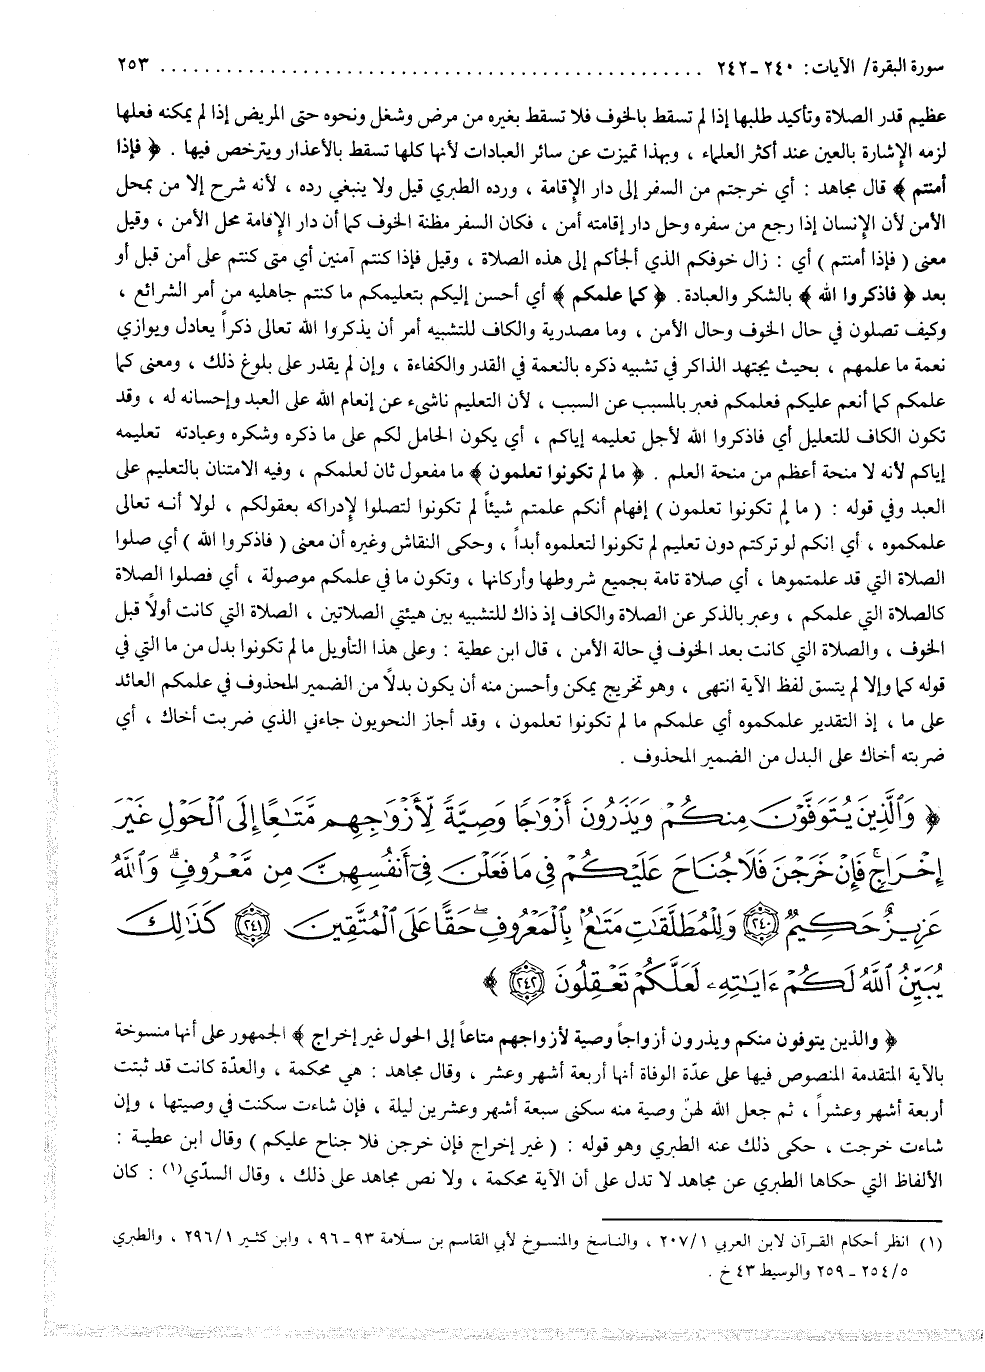 سورة البقرة/ الآيات: ٢٤٠ - ٢٤٢ ........................................................ ٢٥٣
عظيم قدر الصلاة وتأكيد طلبها إذا لم تسقط بالخوف فلا تسقط بغيره من مرض وشغل ونحوه حتى المريض إذا لم يمكنه فعلها
لزمه الإشارة بالعين عند أكثر العلماء ، وبهذا تميزت عن سائر العبادات لأنها كلها تسقط بالأعذار ويترخص فيها . ﴿ فإذا
أمنتم ﴾ قال مجاهد : أي خرجتم من السفر إلى دار الإقامة ، ورده الطبري قيل ولا ينبغي رده ، لأنه شرح إلا من بمحل
الأمن لأن الإنسان إذا رجع من سفره وحل دار إقامته أمن ، فكان السفر مظنة الخوف كما أن دار الإقامة محل الأمن ، وقيل
معنى ( فإذا أمنتم ) أي : زال خوفكم الذي ألجأكم إلى هذه الصلاة ، وقيل فإذا كنتم آمنين أي متى كنتم على أمن قبل أو
بعد ﴿ فاذكروا الله ﴾ بالشكر والعبادة. ﴿ كما علمكم ﴾ أي أحسن إليكم بتعليمكم ما كنتم جاهليه من أمر الشرائع ،
وكيف تصلون في حال الخوف وحال الأمن ، وما مصدرية والكاف للتشبيه أمر أن يذكروا الله تعالى ذكراً يعادل ويوازي
نعمة ما علمهم ، بحيث يجتهد الذاكر في تشبيه ذكره بالنعمة في القدر والكفاءة ، وإن لم يقدر على بلوغ ذلك ، ومعنى كما
علمكم كما أنعم عليكم فعلمكم فعبر بالمسبب عن السبب ، لأن التعليم ناشىء عن إنعام الله على العبد وإحسانه له ، وقد
تكون الكاف للتعليل أي فاذكروا الله لأجل تعليمه إياكم ، أي يكون الحامل لكم على ما ذكره وشكره وعبادته تعليمه
إياكم لأنه لا منحة أعظم من منحة العلم . ﴿ ما لم تكونوا تعلمون ﴾ ما مفعول ثان لعلمكم ، وفيه الامتنان بالتعليم على
العبد وفي قوله : ( ما لم تكونوا تعلمون ) إفهام أنكم علمتم شيئاً لم تكونوا لتصلوا لإدراكه بعقولكم ، لولا أنه تعالى
علمكموه ، أي إنكم لو تركتم دون تعليم لم تكونوا لتعلموه أبداً ، وحكى النقاش وغيره أن معنى ( فاذكروا الله ) أي صلوا
الصلاة التي قد علمتموها ، أي صلاة تامة بجميع شروطها وأركانها ، وتكون ما في علمكم موصولة ، أي فصلوا الصلاة
كالصلاة التي علمكم ، وعبر بالذكر عن الصلاة والكاف إذ ذاك للتشبيه بين هيئتي الصلاتين ، الصلاة التي كانت أولاً قبل
الخوف ، والصلاة التي كانت بعد الخوف في حالة الأمن ، قال ابن عطية : وعلى هذا التأويل ما لم تكونوا بدل من ما التي في
قوله كما وإلا لم يتسق لفظ الآية انتهى ، وهو تخريج يمكن وأحسن منه أن يكون بدلاً من الضمير المحذوف في علمكم العائد
على ما ، إذ التقدير علمكموه أي علمكم ما لم تكونوا تعلمون ، وقد أجاز النحويون جاءني الذي ضربت أخاك ، أي
ضربته أخاك على البدل من الضمير المحذوف .
﴿ وَالَّذِينَ يُتَوَفَّوْنَ مِنكُمْ وَيَذَرُونَ أَزْوَاجًا وَصِيَّةً لِّأَزْوَاجِهِم مَّتَاعًا إِلَى الْحَوْلِ غَيْرَ
إِخْرَاجٍ ۚ فَإِنْ خَرَجْنَ فَلَا جُنَاحَ عَلَيْكُمْ فِي مَا فَعَلْنَ فِي أَنفُسِهِنَّ مِن مَّعْرُوفٍ ۗ وَاللَّهُ
عَزِيزٌ حَكِيمٌ ﴿٢٤٠﴾ وَلِلْمُطَلَّقَاتِ مَتَاعٌ بِالْمَعْرُوفِ ۖ حَقًّا عَلَى الْمُتَّقِينَ ﴿٢٤١﴾ كَذَٰلِكَ
يُبَيِّنُ اللَّهُ لَكُمْ ءَايَاتِهِ لَعَلَّكُمْ تَعْقِلُونَ ﴿٢٤٢﴾ ﴾
﴿ والذين يتوفون منكم ويذرون أزواجاً وصية لأزواجهم متاعاً إلى الحول غير إخراج ﴾ الجمهور على أنها منسوخة
بالآية المتقدمة المنصوص فيها على عدّة الوفاة أنها أربعة أشهر وعشر ، وقال مجاهد : هي محكمة ، والعدّة كانت قد ثبتت
أربعة أشهر وعشراً ، ثم جعل الله لهنّ وصية منه سكنى سبعة أشهر وعشرين ليلة ، فإن شاءت سكنت في وصيتها ، وإن
شاءت خرجت ، حكى ذلك عنه الطبري وهو قوله : ( غير إخراج فإن خرجن فلا جناح عليكم ) وقال ابن عطية :
الألفاظ التي حكاها الطبري عن مجاهد لا تدل على أن الآية محكمة ، ولا نص مجاهد على ذلك ، وقال السدّي(١) : كان
(١) انظر أحكام القرآن لابن العربي ٢٠٧/١ ، والناسخ والمنسوخ لأبي القاسم بن سلامة ٩٣ - ٩٦ ، وابن كثير ٢٩٦/١ ، والطبري
٢٥٤/٥ - ٢٥٩ والوسيط ٤٣ خ .